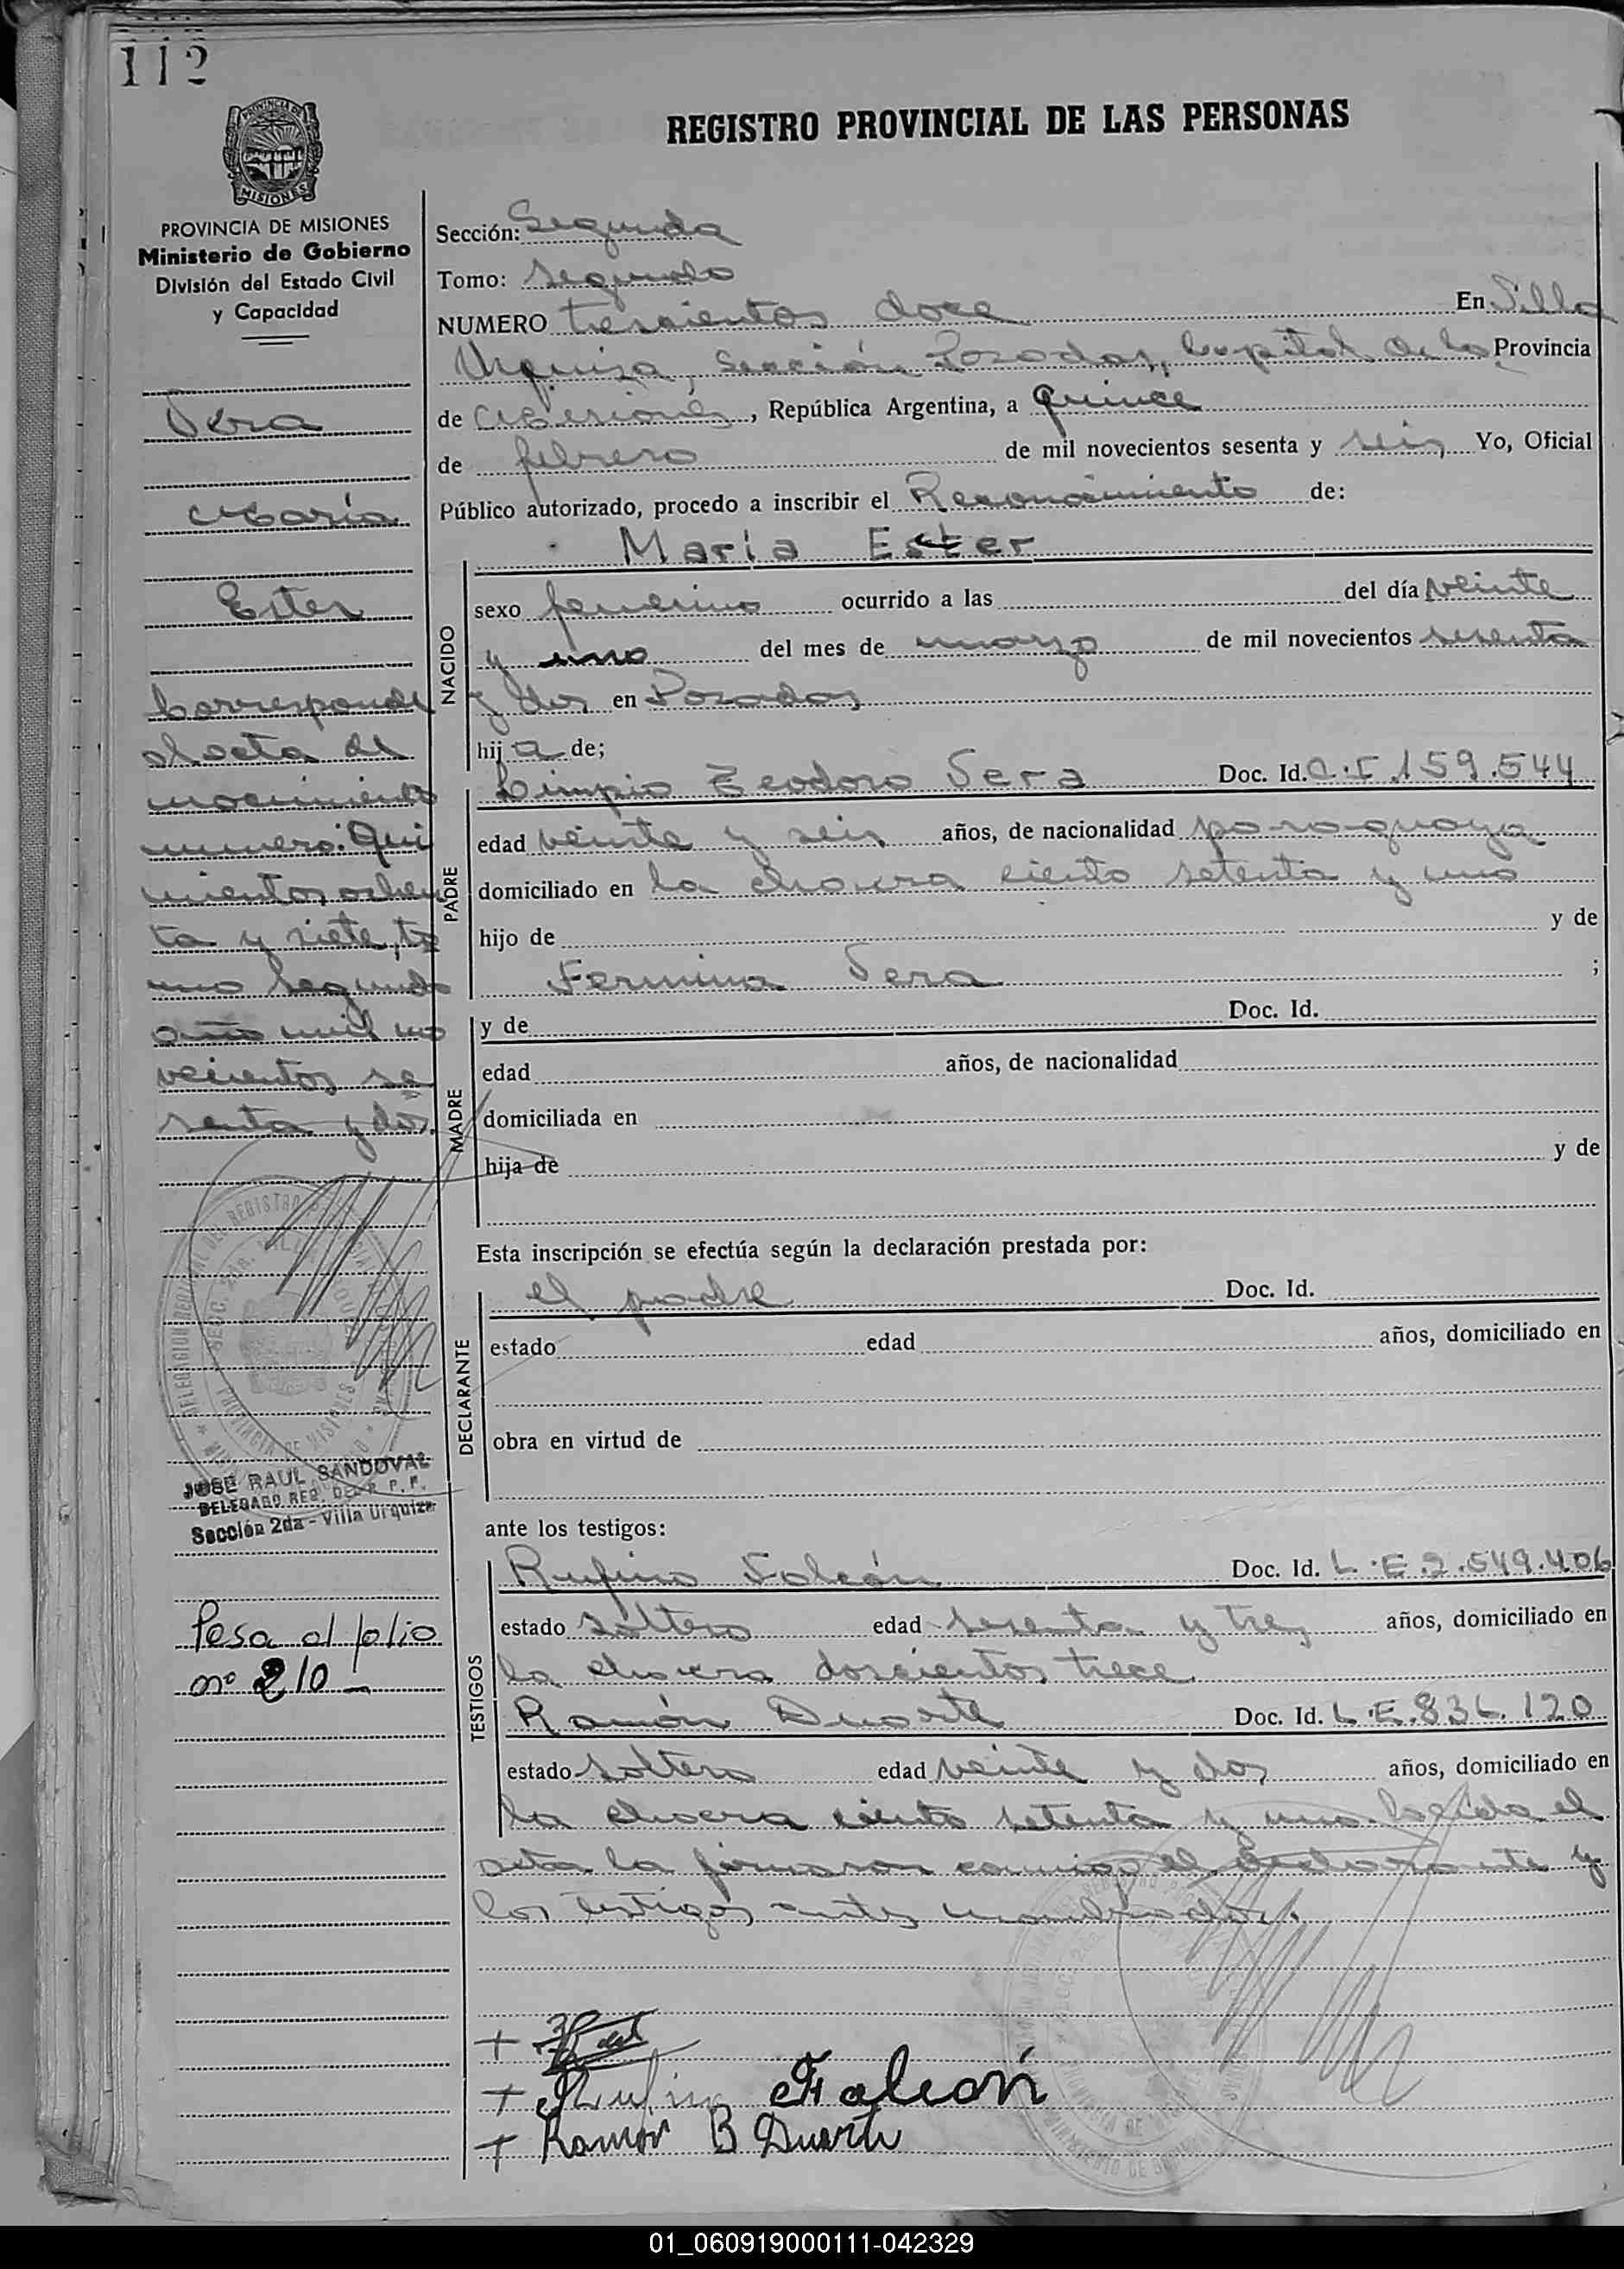 112
REGISTRO PROVINCIAL DE LAS PERSONAS
PROVINCIA DE MISIONES
MISIONES
PROVINCIA DE MISIONES
Ministerio de Gobierno
División del Estado Civil
y Capacidad
Vera
María
Ester
Corresponde
al acta de
nacimiento
numero: Qui
nientos ochen
ta y siete, to
mo segundo
año mil no
vecientos se
senta y dos.
JOSE RAUL SANDOVAL
DELEGADO REG. DE R. P. P.
Sección 2da - Villa Urquiza
Pasa al folio
nº 210 -
Sección: Segunda
Tomo: segundo
NUMERO trescientos doce En Villa
Urquiza, sección Posadas, Capital de la Provincia
de Misiones, República Argentina, a quince
de febrero de mil novecientos sesenta y seis, Yo, Oficial
Público autorizado, procedo a inscribir el Reconocimiento de:
María Ester
NACIDO
sexo femenino ocurrido a las del día veinte
y uno del mes de marzo de mil novecientos sesenta
y dos en Posadas
hij a de;
PADRE
Limpio Teodoro Vera Doc. Id. C.I. 159.544
edad veinte y seis años, de nacionalidad paraguaya
domiciliado en la chacra ciento setenta y uno
hijo de y de
Fermina Vera ;
MADRE
y de Doc. Id.
edad años, de nacionalidad
domiciliada en
hija de y de
Esta inscripción se efectúa según la declaración prestada por:
DECLARANTE
el padre Doc. Id.
estado edad años, domiciliado en
obra en virtud de
ante los testigos:
TESTIGOS
Rufino Falcón Doc. Id. L.E.2.549.406
estado soltero edad sesenta y tres años, domiciliado en
la chacra doscientos trece
Ramón Duarte Doc. Id. L.E.836.120
estado soltero edad veinte y dos años, domiciliado en
la chacra ciento setenta y uno. Leída el
acta la firmaron conmigo el declarante y
los testigos antes nombrados.
+
+ Rufino Falcón
+ Ramón B Duarte
01_060919000111-042329